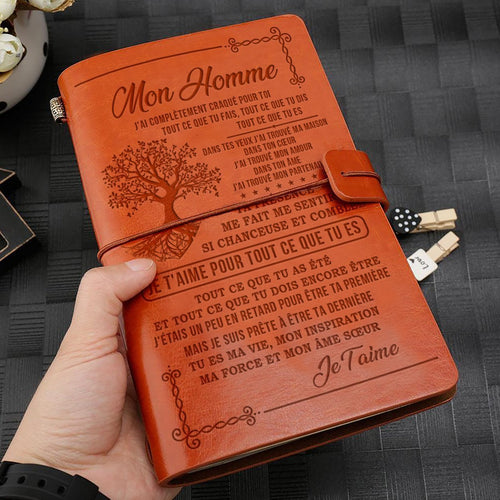 Mon Homme
J'AI COMPLÈTEMENT CRAQUÉ POUR TOI
TOUT CE QUE TU FAIS, TOUT CE QUE TU DIS
TOUT CE QUE TU ES
DANS TES YEUX, J'AI TROUVÉ MA MAISON
DANS TON CŒUR
J'AI TROUVÉ MON AMOUR
DANS TON ÂME
J'AI TROUVÉ MON PARTENAI
TA PRÉSENCE
ME FAIT ME SENTI
SI CHANCEUSE ET COMBL
JE T'AIME POUR TOUT CE QUE TU ES
TOUT CE QUE TU AS ÉTÉ
ET TOUT CE QUE TU DOIS ENCORE ÊTRE
J'ÉTAIS UN PEU EN RETARD POUR ÊTRE TA PREMIÈRE
MAIS JE SUIS PRÊTE À ÊTRE TA DERNIÈRE
TU ES MA VIE, MON INSPIRATION
MA FORCE ET MON ÂME SŒUR
Je T'aime
LOVE